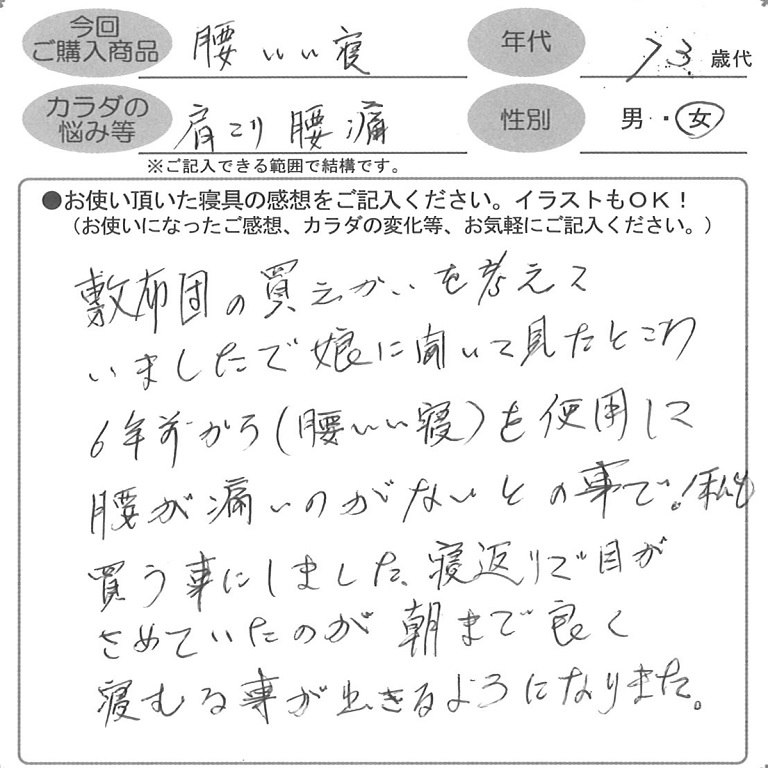 今回
ご購入商品
腰いいい寝
年代
73 歳代
カラダの
悩み等
肩こり 腰痛
性別
男・女
※ご記入できる範囲で結構です。
●お使い頂いた寝具の感想をご記入ください。イラストもOK!
(お使いになったご感想、カラダの変化等、お気軽にご記入ください。)
敷布団の買えかいを考えて
いましたで娘に聞いて見たところ
6年前から(腰いいい寝)を使用して
腰が痛いのがないとの事で!私も
買う事にしました、寝返りで目が
さめていたのが朝まで良く
寝むる事が出きるよろになりまた。